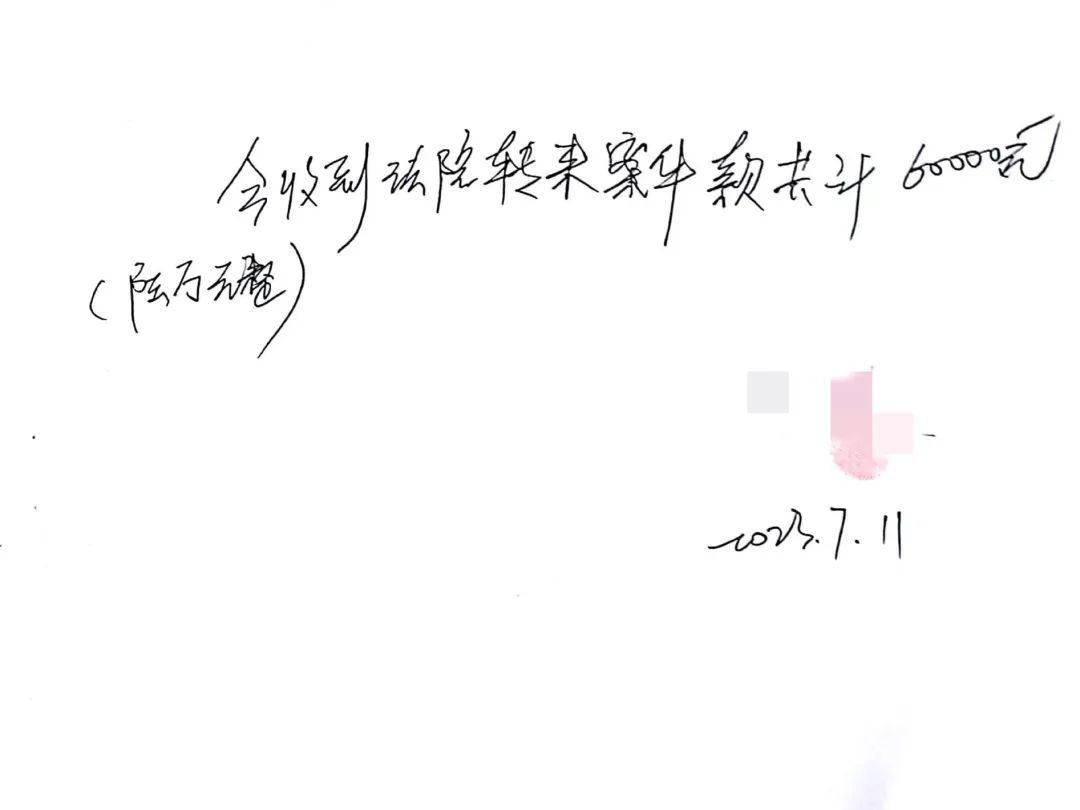 今收到法院转来案件款共计60000元
(陆万元整)
2023.7.11